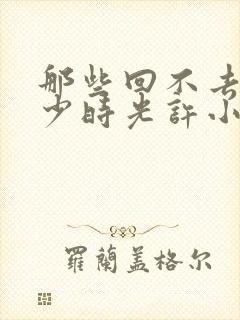 那些回不去
少時光許小
羅蘭蓋格尔